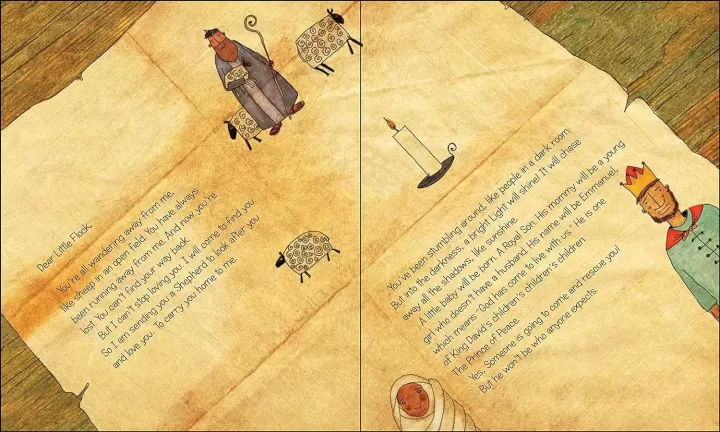 Dear Little Flock,
You're all wandering away from me,
like sheep in an open field. You have always
been running away from me. And now you're
lost. You can't find your way back.
But I can't stop loving you. I will come to find you.
So I am sending you a Shepherd to look after you
and love you. To carry you home to me.
You've been stumbling around, like people in a dark room.
But into the darkness, a bright Light will shine! It will chase
away all the shadows, like sunshine.
A little baby will be born. A Royal Son. His mommy will be a young
girl who doesn't have a husband. His name will be Emmanuel,
which means "God has come to live with us." He is one
of King David's children's children's children.
The Prince of Peace.
Yes, Someone is going to come and rescue you!
But he won't be who anyone expects.